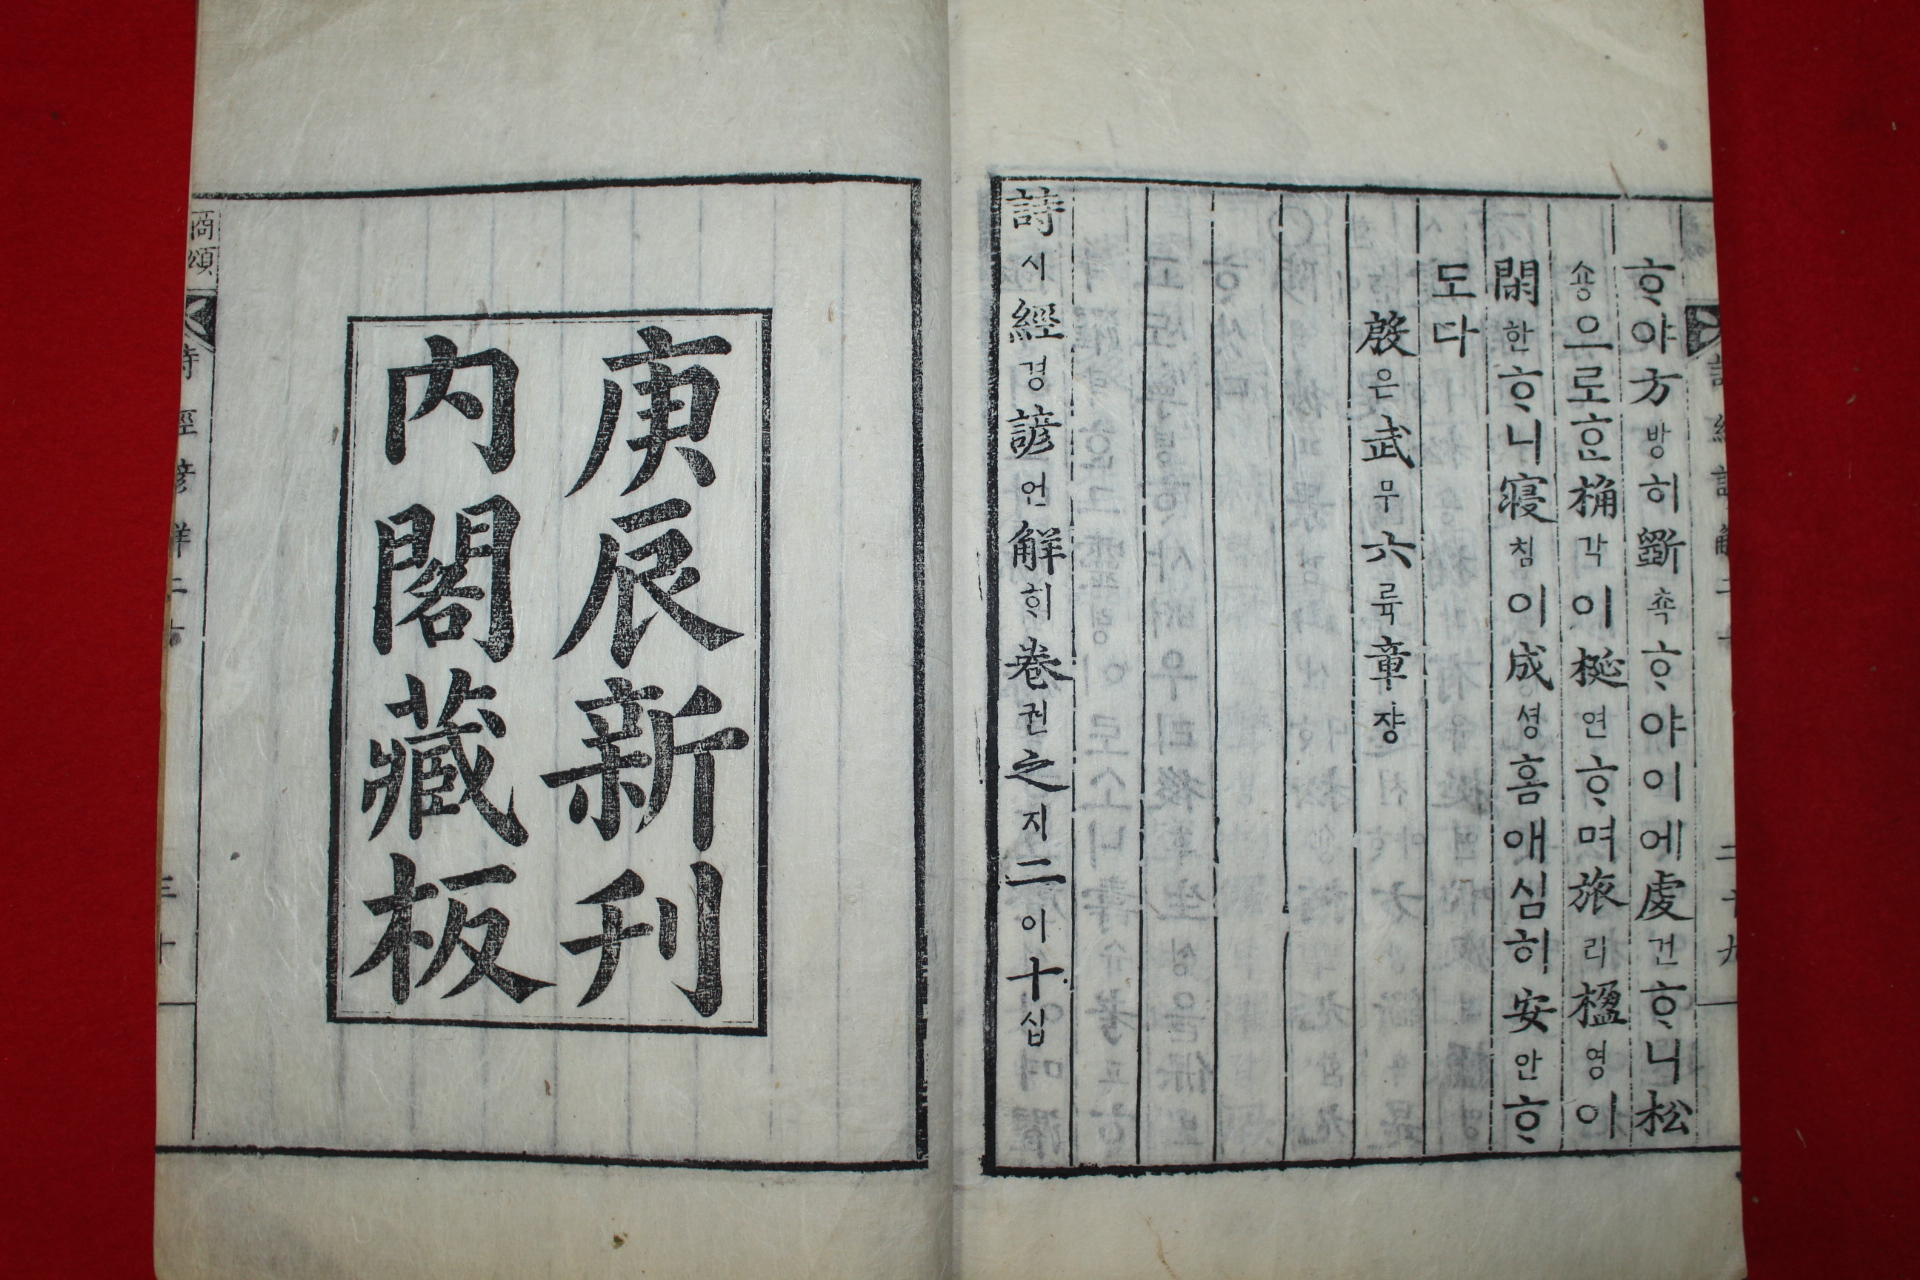 詩經諺解二十 二十九
ᄒᆞ야方방히斲ᄒᆞ야이에虔건ᄒᆞ니松
숑으로ᄒᆞᆫ桷각이梴연ᄒᆞ며旅려楹영이
閑한ᄒᆞ니寢침이成셩홈애심히安안ᄒᆞ
도다
殷은武무六륙章쟝
詩시經경諺언解ᄒᆡ卷권之지二이十십
庚辰新刊
內閣藏板
商頌 詩經諺解二十 三十